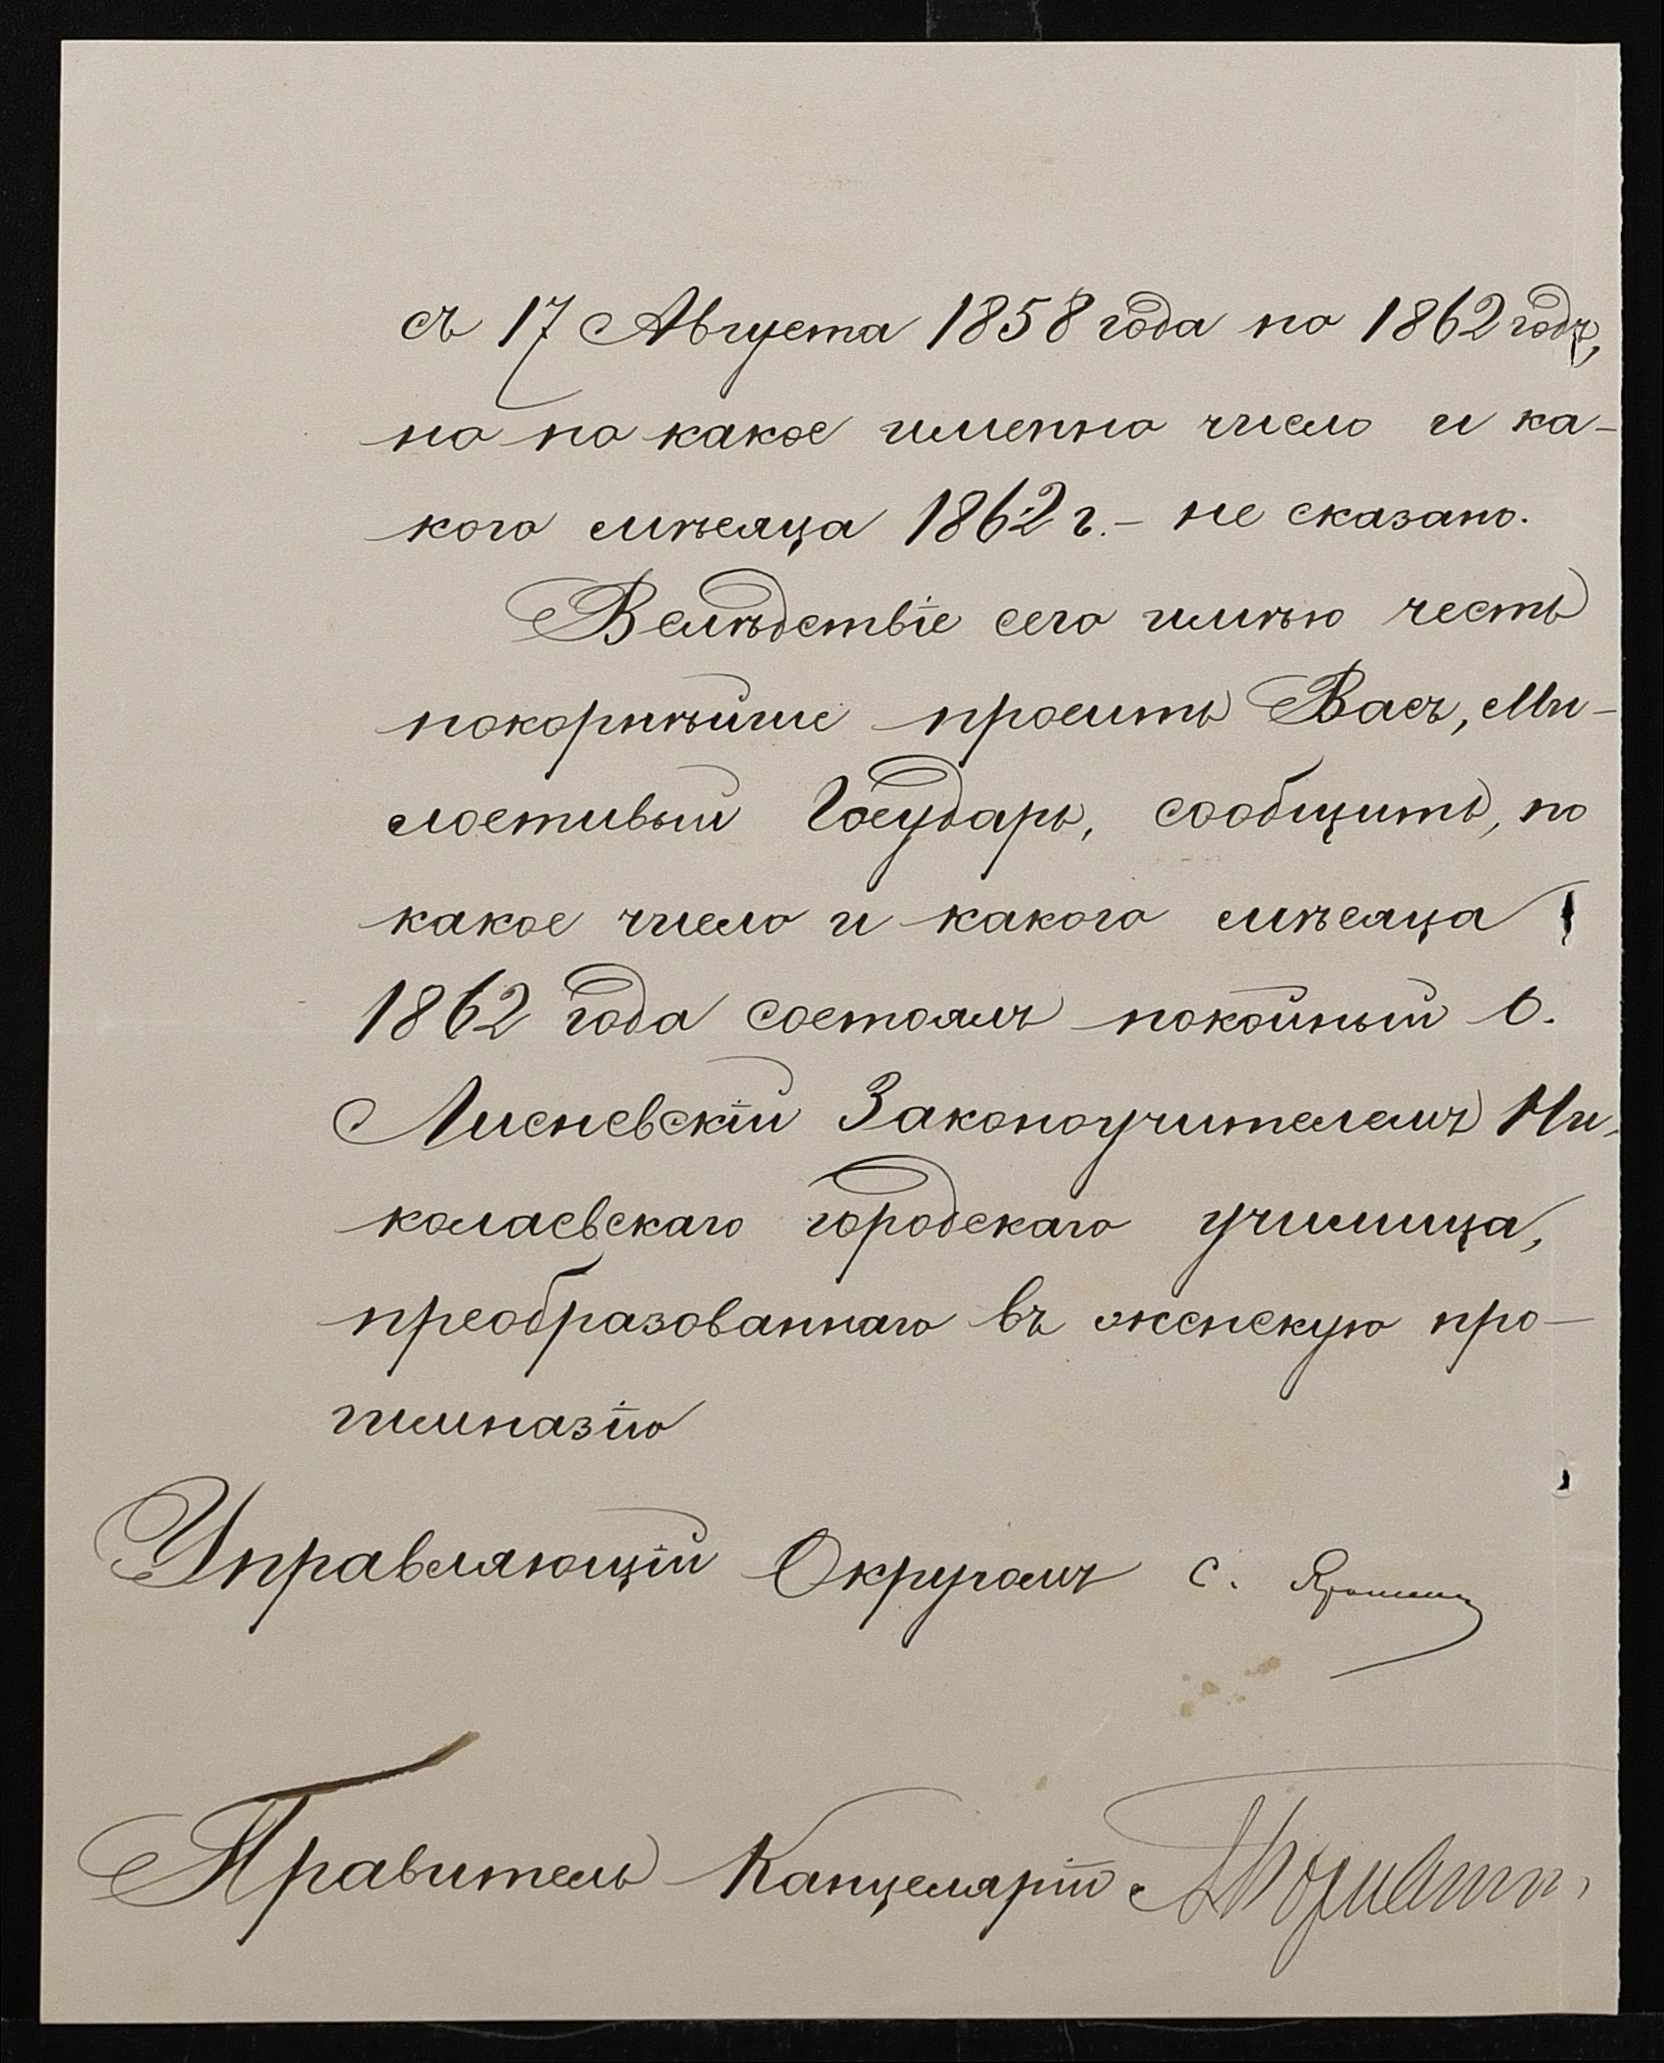 съ 17 Августа 1858 года по 1862 годъ,
но по какое именно число и ка-
кого мѣсяца 1862 г. – не сказано.
Вслѣдствіе сего имѣю честь
покорнѣйше просить Васъ, Ми-
лостивый Государь, сообщить, по
какое число и какого мѣсяца
1862 года состоялъ покойный О.
Лисневскій Законоучителемъ Ни-
колаевскаго городскаго училища,
преобразованнаго въ женскую про-
гимназію
Управляющій Округомъ С.
Правитель Канцеляріи